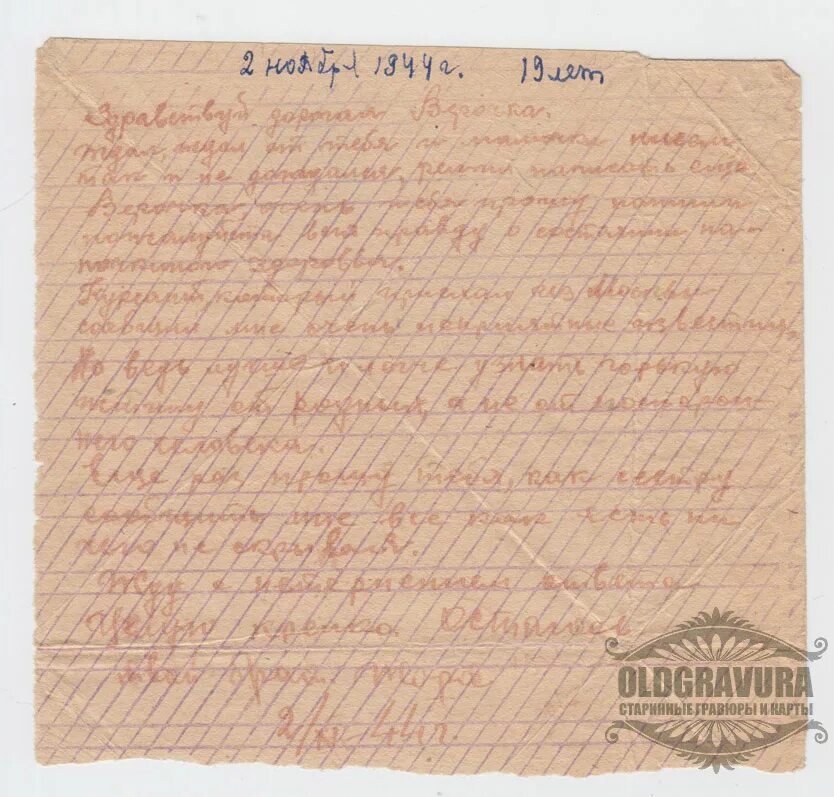 2 ноября 1944г. 19 лет
Здравствуй дорогая Верочка.
Ждал, ждал от тебя и мамочки писем,
так и не дождался, решил написать еще
Верочка, очень тебя прошу напиши
пожалуйста всю правду о состоянии па-
почкиного здоровья.
Курсант, который приехал из Москвы
сообщил мне очень неприятные известия.
Но ведь лучше и легче узнать горькую
истину от родных, а не от посторон-
него человека.
Еще раз прошу тебя, как сестру
сообщить мне все как есть ни
чего не скрывая.
Жду с нетерпением ответа
Целую крепко. Остаюсь
твой брат Жора
2/XI-44г.
OLDGRAVURA
СТАРИННЫЕ ГРАВЮРЫ И КАРТЫ